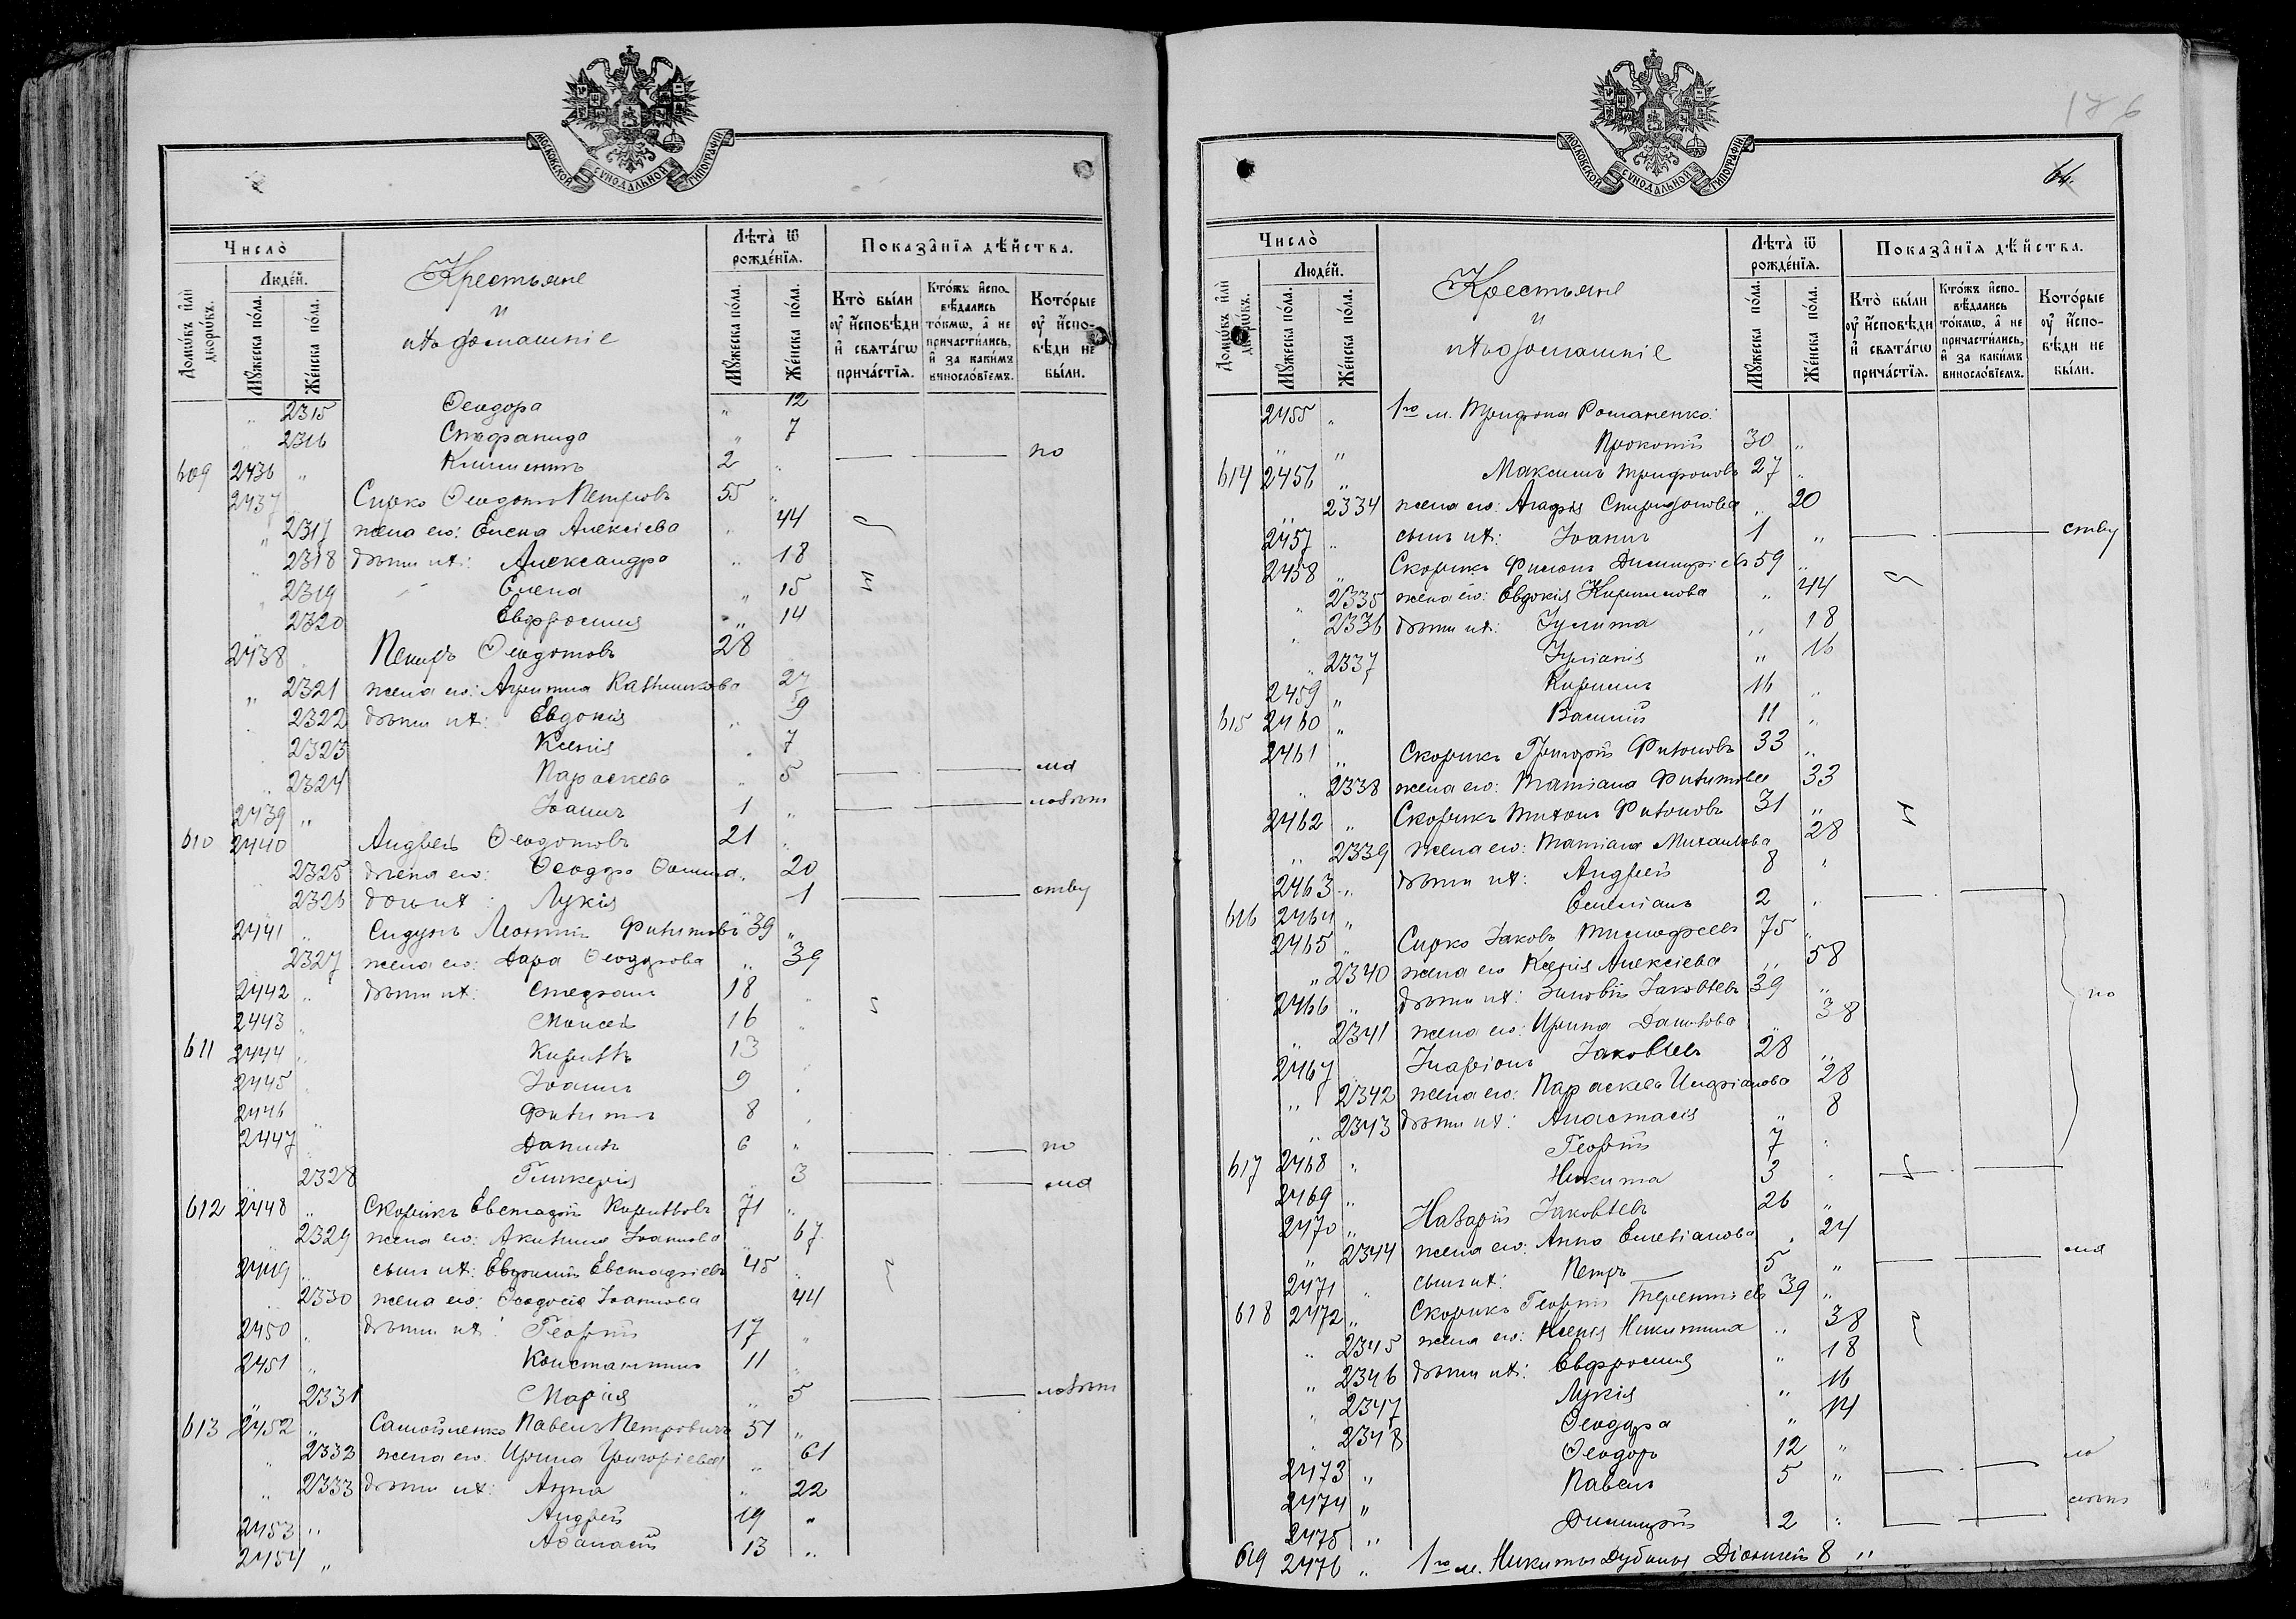 МОСКОВСКОЙ СѴНОДАЛЬНОЙ ТИПОГРАФІИ
Число̀
Людéй.
Домѡ́въ и҆лѝ дворѡ́въ.
Мꙋ́жеска по́ла.
Же́нска по́ла.
Крестьяне
и
ихъ домашніе
Лѣта̀ ѿ рожде́нїѧ.
Мꙋ́жеска по́ла.
Же́нска по́ла.
Показа̑нїѧ дѣ́йства.
Кто̀ бы́ли ᲂу҆ и҆сповѣди и҆ свѧта́гѡ прича́стїѧ.
Кто́жъ и҆спо­вѣдались то́кмѡ, а҆ не причасти́лись, и҆ за каки́мъ винослові́емъ.
Кото́рые ᲂу҆ и҆спо­вѣди не бы́ли.
„ 2315 Ѳеодора „ 12
„ 2316 Стефанида „ 7
609 2436 „ Климентъ 2 „ по
2437 „ Сирко Ѳеодотъ Петровъ 55 „
„ 2317 жена его: Елена Алексіева „ 44
„ 2318 дѣти ихъ: Александра „ 18
„ 2319 Елена „ 15
„ 2320 Евфросинія „ 14
2438 „ Петръ Ѳеодотовъ 28
„ 2321 жена его: 27
„ 2322 дѣти ихъ: Евдокія „ 9
2323 Ксенія „ 7
„ 2324 Параскева „ 5 ма
2439 „ Іоаннъ 1 „ лолѣт
610 2440 Андрей Ѳеодотовъ 21 „
2325 жена его: Ѳеодора Ѳомина „ 20
2326 дочь ихъ: Лукія 1 ству
2441 „ Сидунъ Леонтій Филиповъ 39 „
2327 жена его: Дарія Ѳеодорова „ 39
2442 „ дѣти ихъ: Стефанъ 18 „
2443 „ Моисей 16 „
611 2444 „ Кириллъ 13
2445 „ Іоаннъ 9 „
2446 „ Филиппъ 8 „
2447 „ Даніилъ 6 „ по
2328 Гликерія „ 3 ма
612 2448 „ Скорикъ Евстафій Кирилловъ 71 „
2329 жена его: Акилина Іоаннова „ 67
2449 „ сынъ ихъ: Евфимій Евстафіевъ 45 „
2330 жена его: Ѳеодосія Іоаннова 44
2450 „ дѣти ихъ: Георгій 17 „
2451 „ Константинъ 11 „
„ 2331 Марія „ 5 лолѣт
613 2452 „ Самойленко Павелъ Петровичъ 51 „
„ 2332 жена его: Ирина Григоріева „ 61
„ 2333 дѣти ихъ: Анна „ 22
2453 „ Андрей 19 „
2454 „ Аѳанасій 13 „
МОСКОВСКОЙ СѴНОДАЛЬНОЙ ТИПОГРАФІИ
176
64.
Число̀
Людéй.
Домѡ́въ и҆лѝ дворѡ́въ.
Мꙋ́жеска по́ла.
Же́нска по́ла.
Крестьяне
и
ихъ домашніе
Лѣта̀ ѿ рожде́нїѧ.
Мꙋ́жеска по́ла.
Же́нска по́ла.
Показа̑нїѧ дѣ́йства.
Кто̀ бы́ли ᲂу҆ и҆сповѣди и҆ свѧта́гѡ прича́стїѧ.
Кто́жъ и҆спо­вѣдались то́кмѡ, а҆ не причасти́лись, и҆ за каки́мъ винослові́емъ.
Кото́рые ᲂу҆ и҆спо­вѣди не бы́ли.
2455 „ 1го м. Трифона Романенко:
„ „ Прокопій 30 „
614 2456 „ Максимъ Трифоновъ 27 „
„ 2334 жена его: Агафія Спиридонова „ 20
2457 „ сынъ ихъ: Іоаннъ 1 „ ству
2458 „ Скорикъ Филонъ Димитріевъ 59 „
„ 2335 жена его: Евдокія Кириллова „ 44
„ 2336 дѣти ихъ: Іулита „ 18
„ 2337 Іуліанія „ 16
2459 „ Кириллъ 16 „
615 2460 „ Василій 11 „
2461 „ Скорикъ Григорій Филоновъ 33 „
„ 2338 жена его: Татіана Филипова 33
2462 „ Скорикъ Тихонъ Филоновъ 31 „
„ 2339 жена его: Татіана Михаилова 28
2463 „ дѣти ихъ: Андрей 8 „
616 2464 „ Емиліанъ 2 „
2465 „ Сирко Іаковъ Тимофеевъ 75 „
„ 2340 жена его Ксенія Алексіева „ 58
2466 „ дѣти ихъ: Зиновій Іаковлевъ 39 „ по
„ 2341 жена его: Ирина Данилова „ 38
2467 Иларіонъ Іаковлевъ 28 „
„ 2342 жена его: Параскева 28
„ 2343 дѣти ихъ: Анастасія „ 8
617 2468 „ Георгій 7 „
2469 „ Никита 3 „
2470 „ Назарій Іаковлевъ 26 „
„ 2344 жена его: Анна Емеліанова „ 24
2471 „ сынъ ихъ: Петръ 5 „ ма
618 2472 „ Скорикъ Георгій Терентіевъ 39 „
„ 2345 жена его: Ксенія Никитина „ 38
„ 2346 дѣти ихъ: Евфросинія „ 18
„ 2347 Лукія „ 16
„ 2348 Ѳеодора „ 14
2473 „ Ѳеодоръ 12 „
2474 „ Павелъ 5 „ ло
2475 „ Димитрій 2 „
619 2476 „ 1го м. Никиты Діонисій 8 „